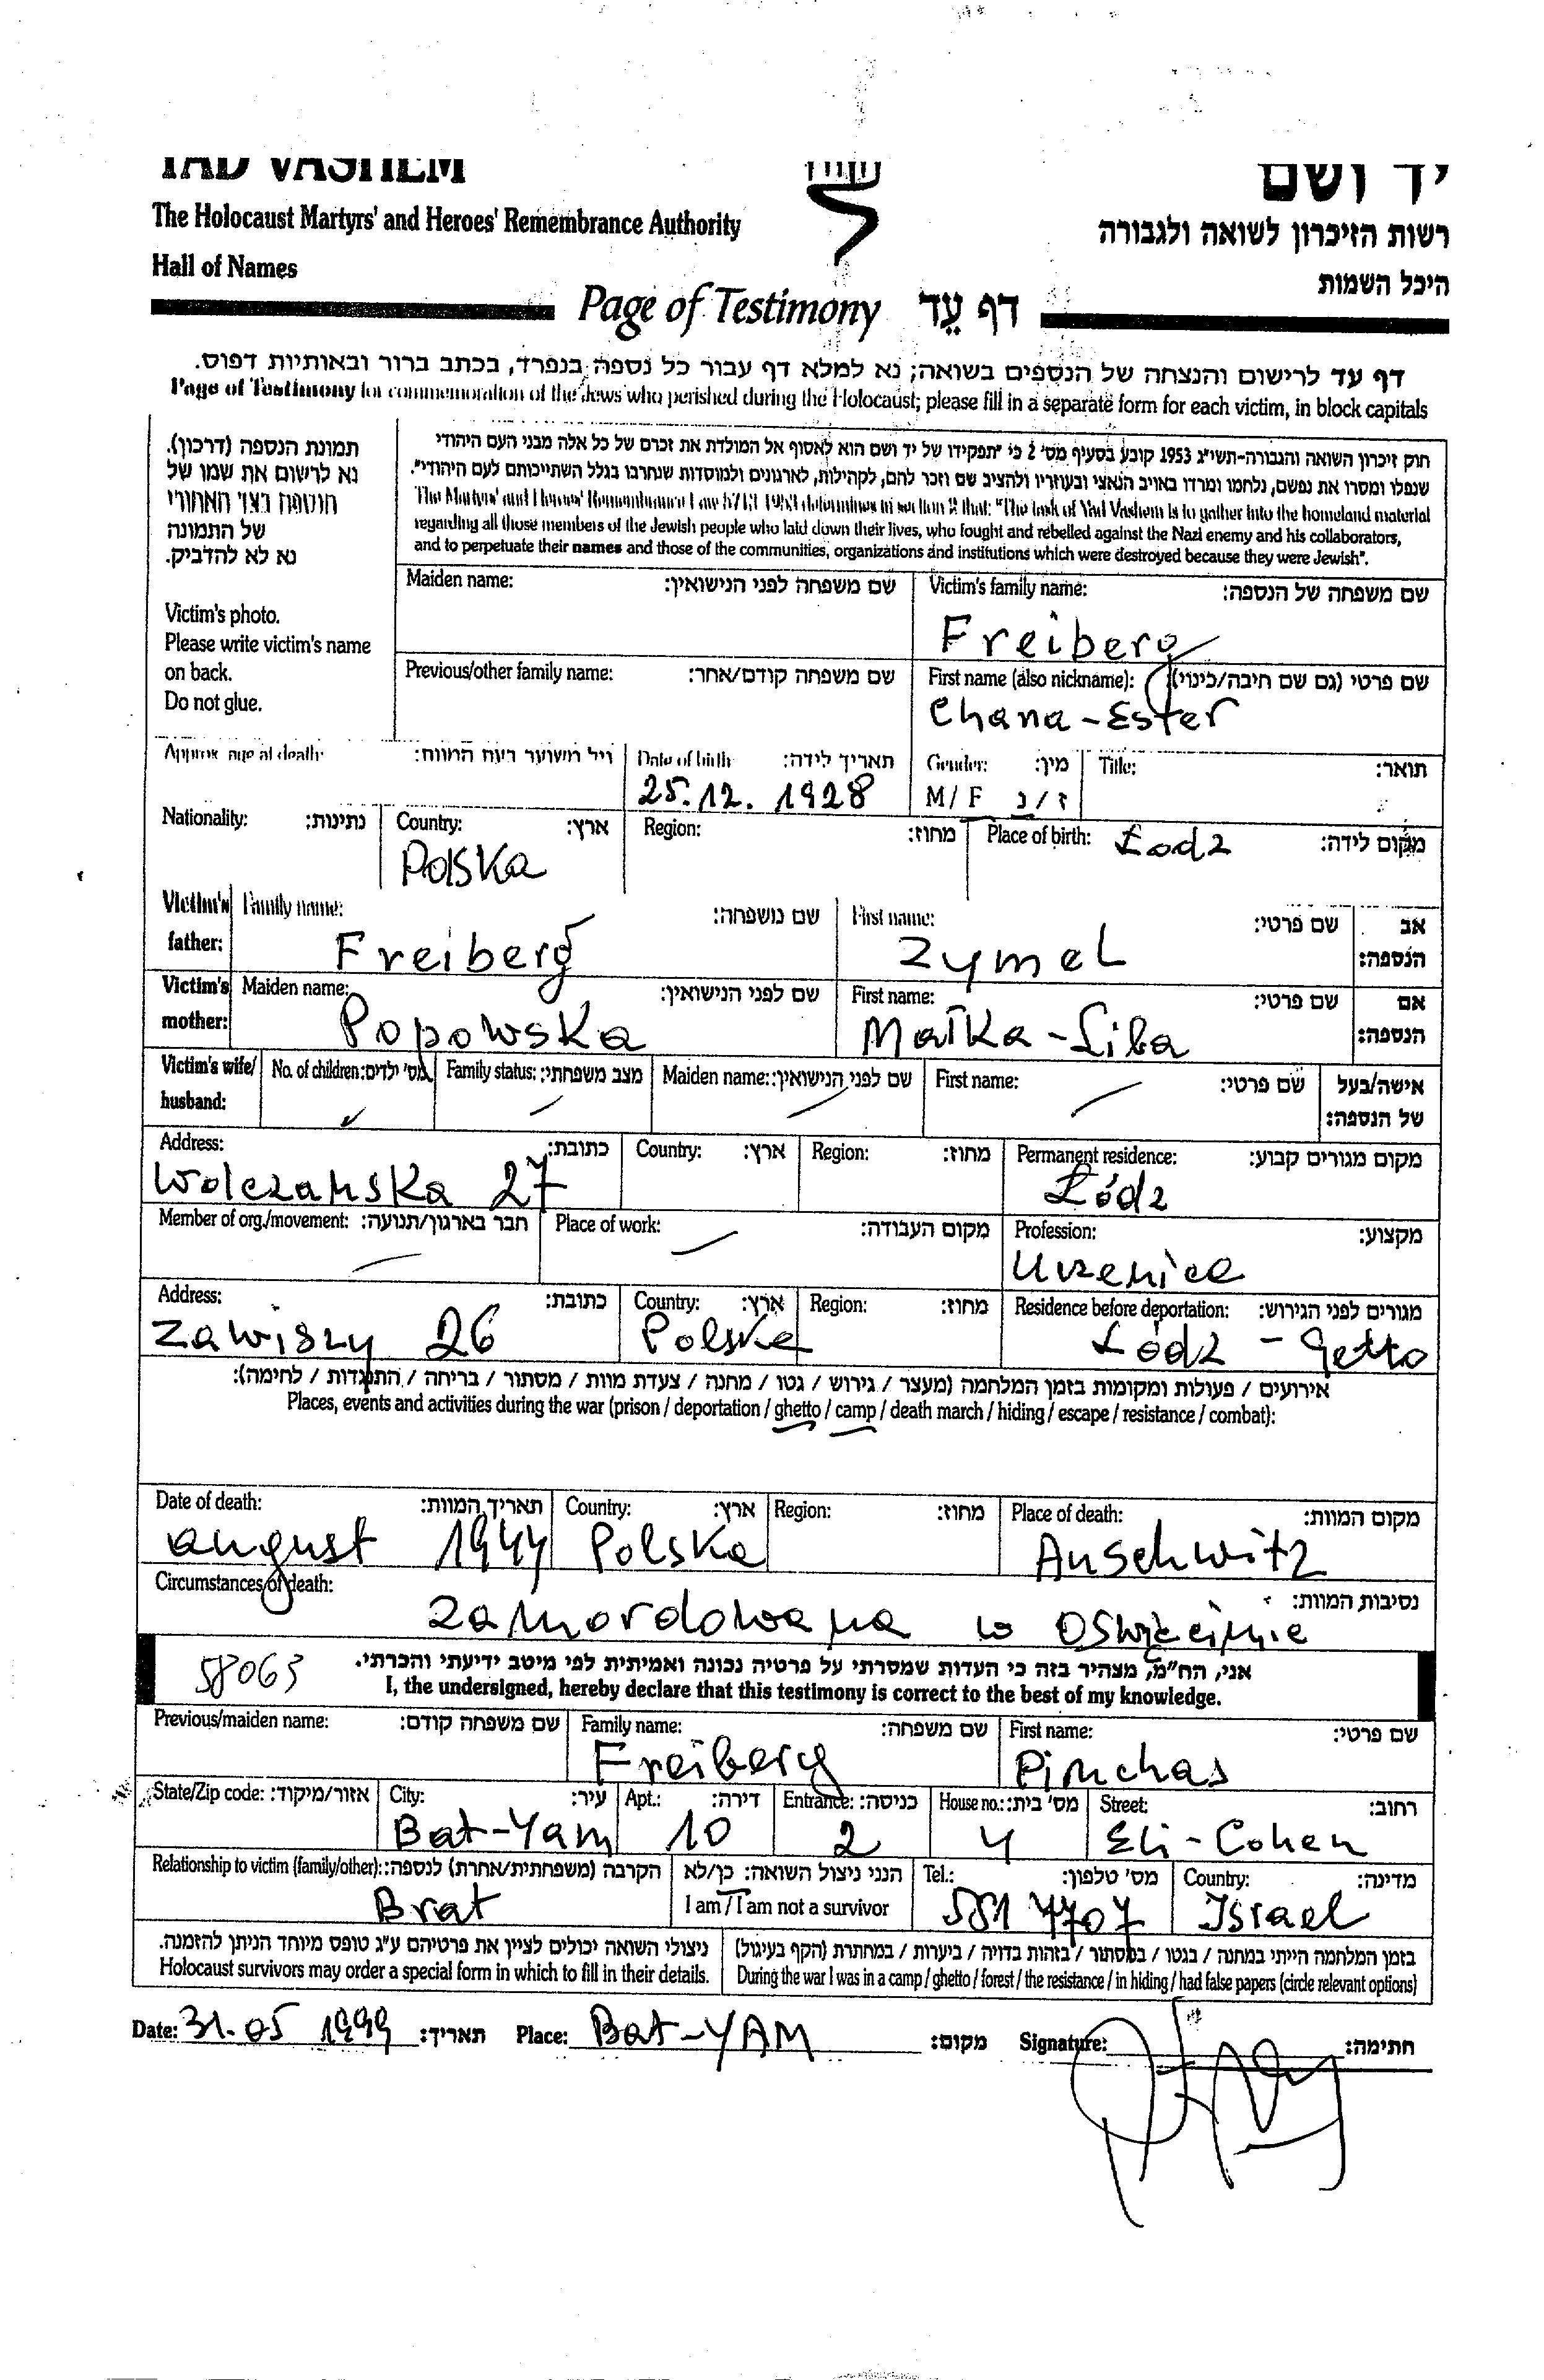 YAD VASHEM יד ושם
The Holocaust Martyrs' and Heroes' Remembrance Authority רשות הזיכרון לשואה ולגבורה
Hall of Names היכל השמות
Page of Testimony דף עֵד
דף עד לרישום והנצחה של הנספים בשואה; נא למלא דף עבור כל נספה בנפרד, בכתב ברור ובאותיות דפוס.
Page of Testimony for commemoration of the Jews who perished during the Holocaust; please fill in a separate form for each victim, in block capitals
תמונת הנספה (דרכון).
נא לרשום את שמו של
הנספה בצד האחורי
של התמונה
נא לא להדביק.
Victim's photo.
Please write victim's name
on back.
Do not glue.
חוק זיכרון השואה והגבורה-תשי"ג 1953 קובע בסעיף מס' 2 כי "תפקידו של יד ושם הוא לאסוף אל המולדת את זכרם של כל אלה מבני העם היהודי
שנפלו ומסרו את נפשם, נלחמו ומרדו באויב הנאצי ובעוזריו ולהציב שם וזכר להם, לקהילות, לארגונים ולמוסדות שנחרבו בגלל השתייכותם לעם היהודי".
The Martyrs' and Heroes' Remembrance Law 5713-1953 determines in section 2 that: "The task of Yad Vashem is to gather into the homeland material
regarding all those members of the Jewish people who laid down their lives, who fought and rebelled against the Nazi enemy and his collaborators,
and to perpetuate their names and those of the communities, organizations and institutions which were destroyed because they were Jewish".
Maiden name: שם משפחה לפני הנישואין: Victim's family name: שם משפחה של הנספה:
Freiberg
Previous/other family name: שם משפחה קודם/אחר: First name (also nickname): שם פרטי (גם שם חיבה/כינוי)
Chana-Ester
Approx. age at death: גיל משוער בעת המוות: Date of birth תאריך לידה: Gender: מין: Title: תואר:
25.12.1928 M/F ז/נ
Nationality: נתינות: Country: ארץ: Region: מחוז: Place of birth: Łodz מקום לידה:
Polska
Victim's father: Family name: שם משפחה: First name: שם פרטי: אב הנספה:
Freiberg Zymel
Victim's mother: Maiden name: שם לפני הנישואין: First name: שם פרטי: אם הנספה:
Popowska Małka-Liba
Victim's wife/husband: No. of children: מס' ילדים: Family status: מצב משפחתי: Maiden name: שם לפני הנישואין: First name: שם פרטי: אישה/בעל של הנספה:
Address: כתובת: Country: ארץ: Region: מחוז: Permanent residence: מקום מגורים קבוע:
Wolczanska 27 Łódz
Member of org./movement: חבר בארגון/תנועה: Place of work: מקום העבודה: Profession: מקצוע:
Uczenica
Address: כתובת: Country: ארץ: Region: מחוז: Residence before deportation: מגורים לפני הגירוש:
Zawiszy 26 Polska Łódz - Getto
אירועים / פעולות ומקומות בזמן המלחמה (מעצר / גירוש / גטו / מחנה / צעדת מוות / מסתור / בריחה / התנגדות / לחימה):
Places, events and activities during the war (prison / deportation / ghetto / camp / death march / hiding / escape / resistance / combat):
Date of death: תאריך המוות: Country: ארץ: Region: מחוז: Place of death: מקום המוות:
august 1944 Polska Auschwitz
Circumstances of death: נסיבות המוות:
zamordowana w Oswięcimie
58063 אני, הח"מ, מצהיר בזה כי העדות שמסרתי על פרטיה נכונה ואמיתית לפי מיטב ידיעתי והכרתי.
I, the undersigned, hereby declare that this testimony is correct to the best of my knowledge.
Previous/maiden name: שם משפחה קודם: Family name: שם משפחה: First name: שם פרטי:
Freiberg Pinchas
State/Zip code: אזור/מיקוד: City: עיר: Apt.: דירה: Entrance: כניסה: House no.: מס' בית: Street: רחוב:
Bat-Yam 10 2 4 Eli-Cohen
Relationship to victim (family/other): הקרבה (משפחתית/אחרת) לנספה: הנני ניצול השואה: כן/לא Tel.: מס' טלפון: Country: מדינה:
Brat I am / I am not a survivor 551 7707 Israel
ניצולי השואה יכולים לציין את פרטיהם ע"ג טופס מיוחד הניתן להזמנה. בזמן המלחמה הייתי במחנה / בגטו / במסתור / בזהות בדויה / ביערות / במחתרת (הקף בעיגול)
Holocaust survivors may order a special form in which to fill in their details. During the war I was in a camp / ghetto / forest / the resistance / in hiding / had false papers (circle relevant options)
Date: 31.05 1999 תאריך: Place: Bat-YAM מקום: Signature: חתימה: